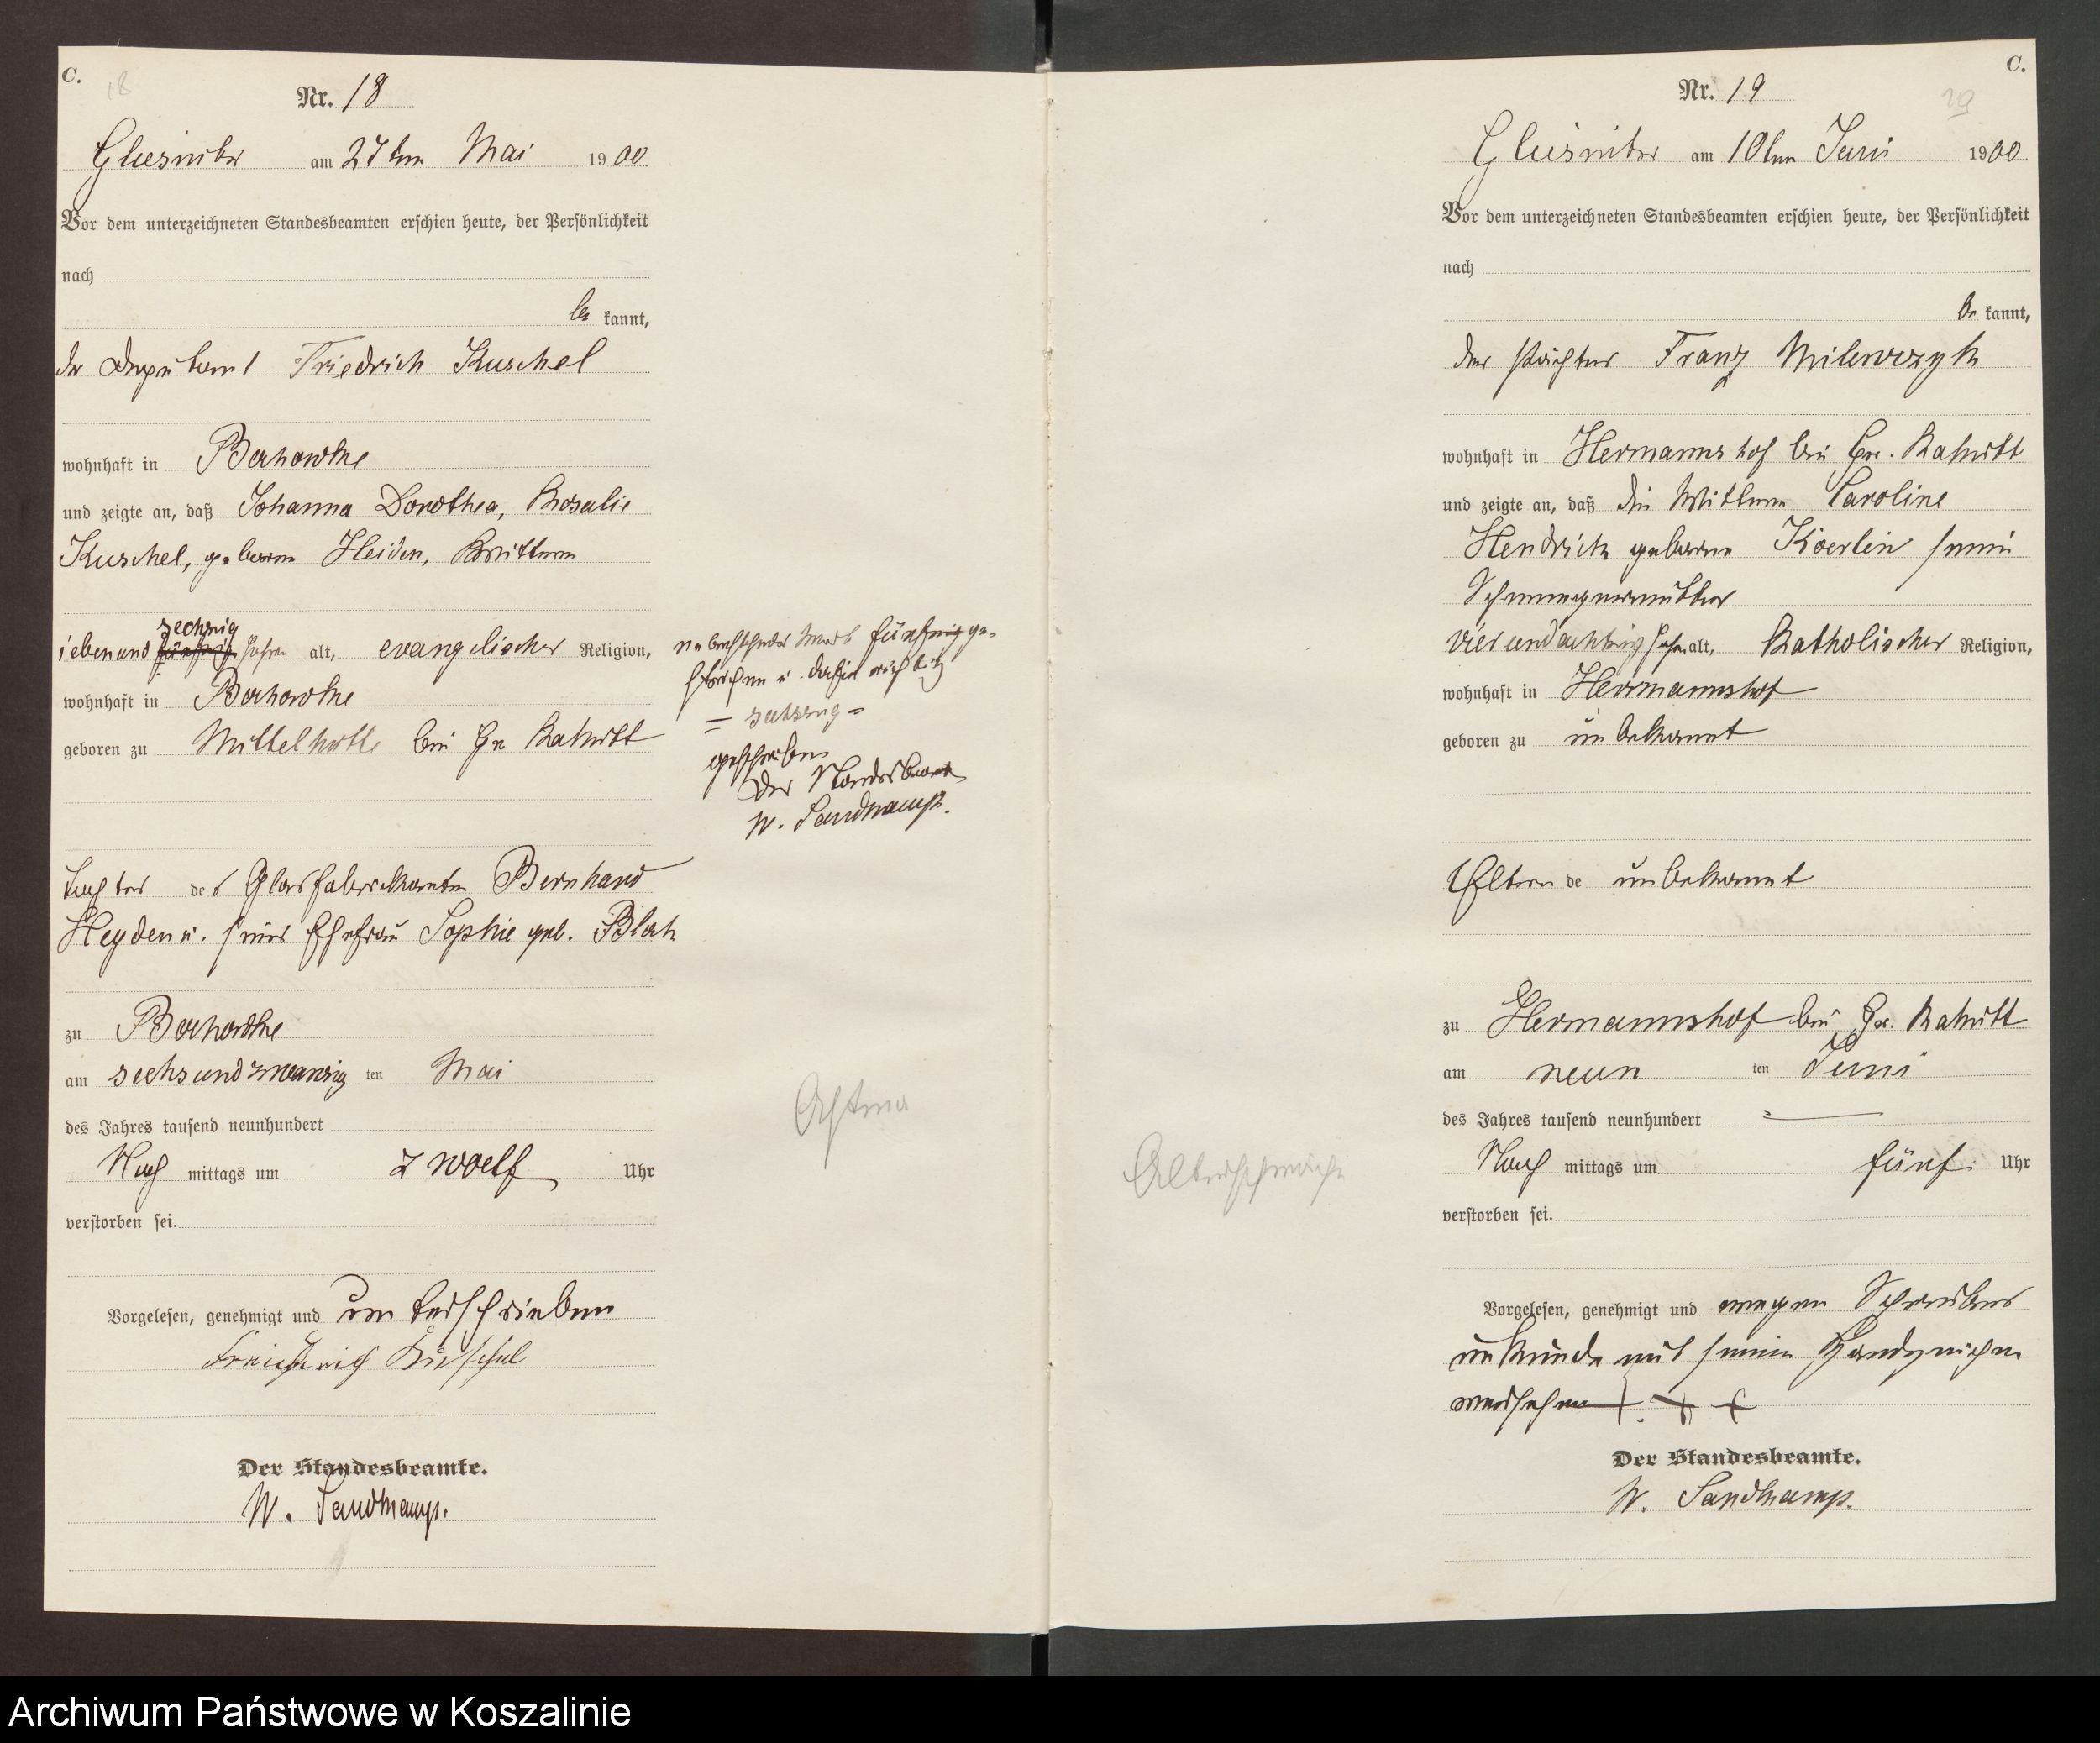 C.
18
Nr. 18
Gliesnitz am 27ten Mai 1900
Vor dem unterzeichneten Standesbeamten erschien heute, der Persönlichkeit
nach
be kannt,
der Deputant Friedrich Kuschel
wohnhaft in
und zeigte an, daß Johanna Dorothea, Rosalie
Kuschel, geborene Heiden, Wittwe
siebenund sechzig fünfzig Jahre alt, evangelischer Religion,
wohnhaft in
geboren zu Mittelhütte bei Gr
Tochter des Glasfabrikanten Bernhard
Heyden u. seiner Ehefrau Sophie geb.
zu
am sechsundzwanzig ten Mai
des Jahres tausend neunhundert
Nach mittags um zwoelf Uhr
verstorben sei.
Vorgelesen, genehmigt und unterschrieben
Friedrich Kuschel
Der Standesbeamte.
W. Sandkamp.
Wort fünfzig ge-
strichen u. dafür
= sechszig =
geschrieben
Der Standesbeamte
W. Sandkamp.
Astma
C.
19
Nr. 19
Gliesnitz am 10ten Juni 1900
Vor dem unterzeichneten Standesbeamten erschien heute, der Persönlichkeit
nach
be kannt,
der Pächter Franz Milewczyk
wohnhaft in Hermannshof bei Gr.
und zeigte an, daß die Wittwe Caroline
Hendrich geborene Koerlin seine
Schwiegermutter
vierundachtzig Jahre alt, Katholischer Religion,
wohnhaft in Hermannshof
geboren zu unbekannt
Eltern de unbekannt
zu Hermannshof bei Gr.
am neun ten Juni
des Jahres tausend neunhundert
Nach mittags um fünf Uhr
verstorben sei.
Altersschwäche
Vorgelesen, genehmigt und wegen Schreibens
unkunde mit seinem Handzeichen
versehen + + +
Der Standesbeamte.
W. Sandkamp.
Archiwum Państwowe w Koszalinie